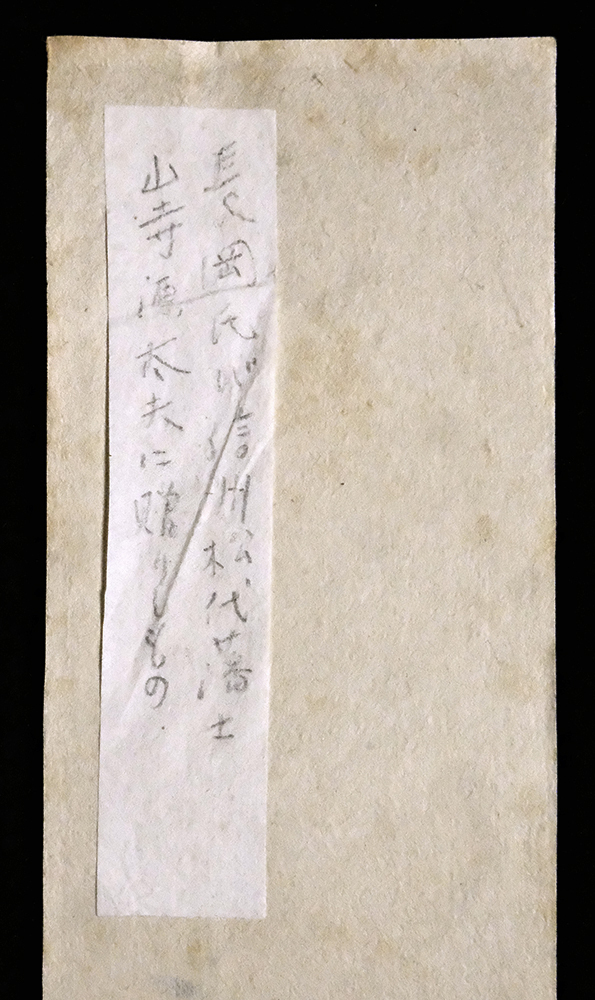 長岡氏が信州松代藩士
山寺源太夫に贈りしもの